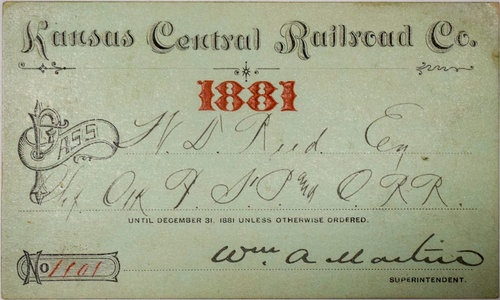 Kansas Central Railroad Co.
1881
Pass W. D. Reed, Esq
P. & O. R.R.
UNTIL DECEMBER 31, 1881 UNLESS OTHERWISE ORDERED.
Wm A Martin
No 1101
SUPERINTENDENT.